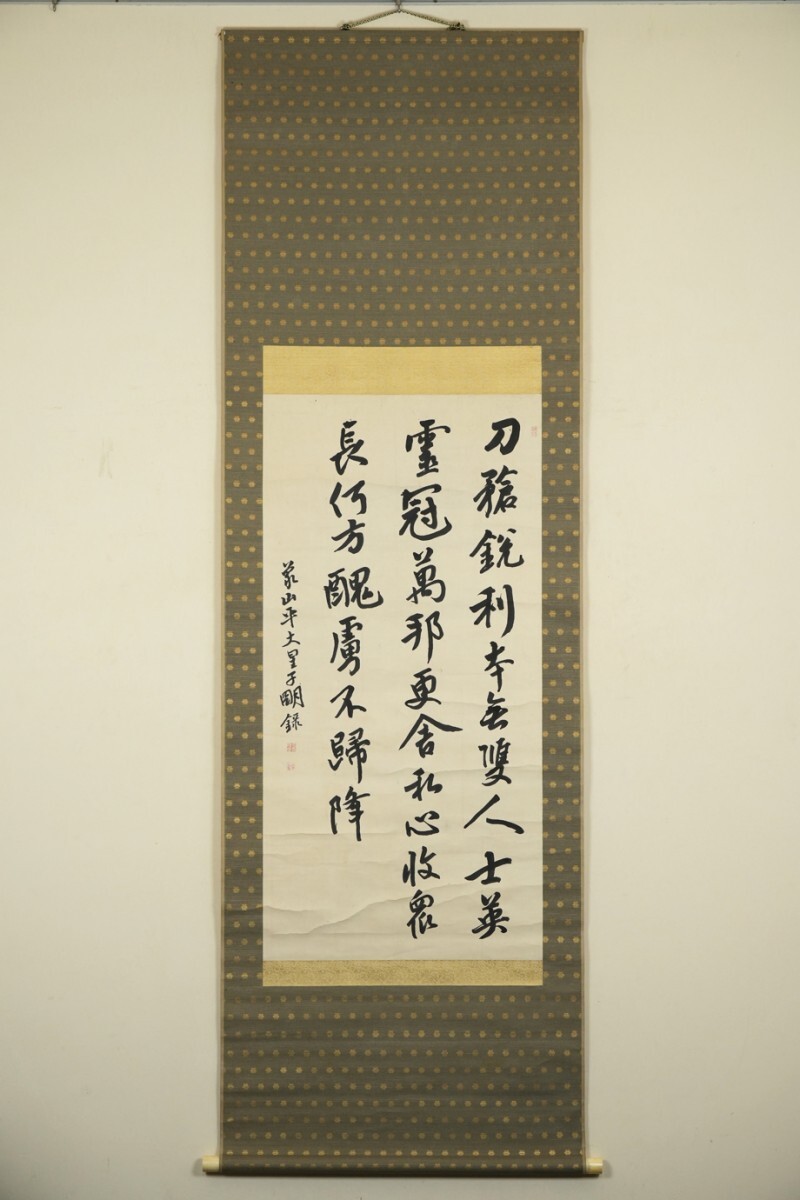 刀槍銳利本無雙人士英
靈冠萬邦更舍私心收衆
長何方醜虜不歸降
山平大星子明錄